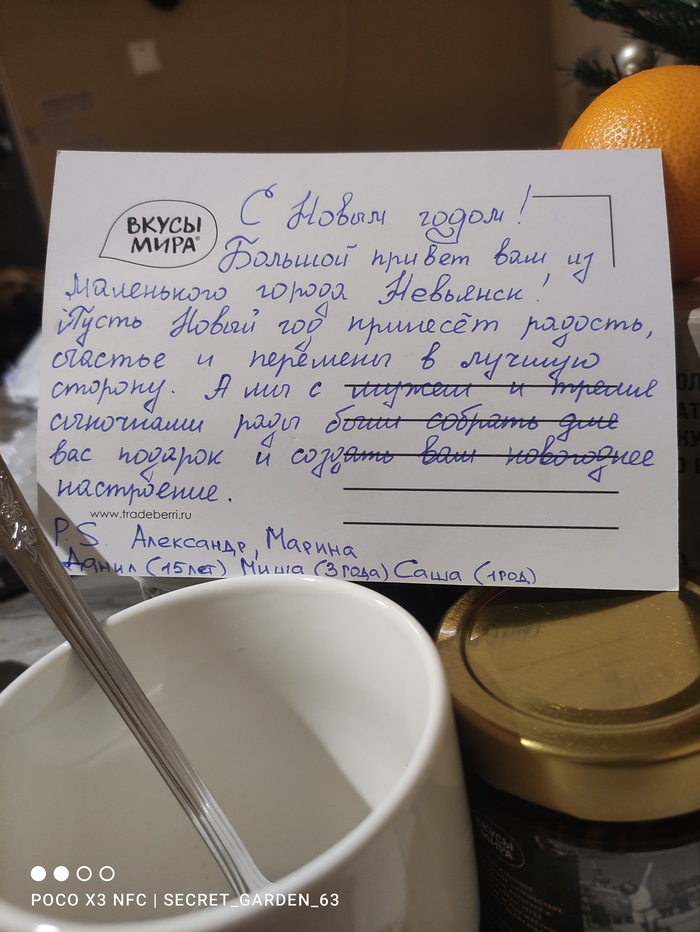 ВКУСЫ
МИРА®
С Новым годом!
Большой привет вам из
маленького города Невьянск!
Пусть Новый год принесёт радость,
счастье и перемены в лучшую
сторону. А мы с мужем и тремя
сыночками рады были собрать для
вас подарок и создать вам новогоднее
настроение.
www.tradeberri.ru
P.S. Александр, Марина
Данил (15лет) Миша (3года) Саша (1год)
ВКУСЫ
МИРА
POCO X3 NFC | SECRET_GARDEN_63